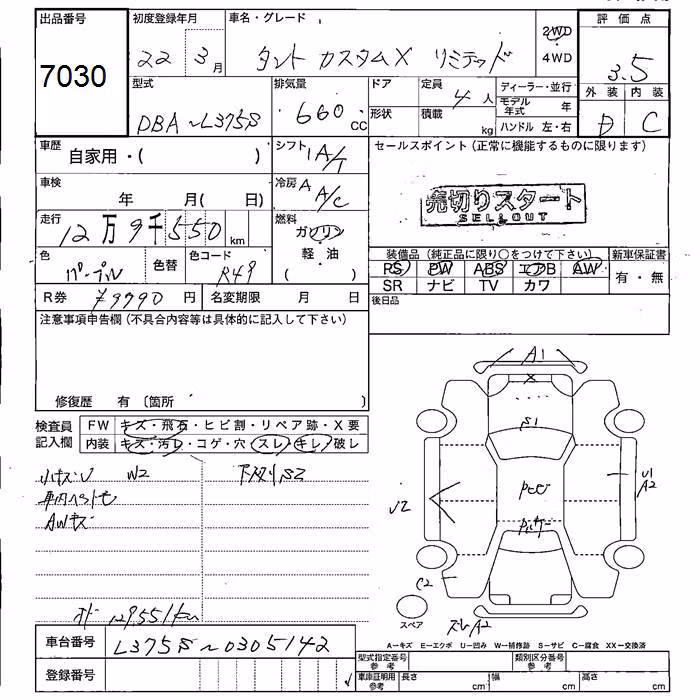 出品番号 初度登録年月 車名・グレード 2WD 評価点
7030 22 3月 タント カスタムX リミテッド 4WD 3.5
型式 排気量 ドア 定員 4人 ディーラー・並行 外装 内装
DBA-L375S 660cc 形状 積載 kg モデル年式 年 D C
ハンドル 左・右
車歴 自家用・( ) シフト IA/T セールスポイント(正常に機能するものに限ります)
車検 年 月( 日) 冷房 A A/C 売切りスタート
SELLOUT
走行 12万9千550km 燃料 ガソリン・軽・油
色 パープル 色替 色コード R49 装備品(純正品に限り○をつけて下さい) 新車保証書
PS PW ABS エアB AW 有・無
SR ナビ TV カワ
R券 ¥9790円 名変期限 月 日 後日品
注意事項申告欄(不具合内容等は具体的に記入して下さい)
修復歴 有〔箇所 〕
検査員記入欄 FW キズ・飛石・ヒビ割・リペア跡・X要
内装 キズ・汚レ・コゲ・穴 スレ・キレ・破レ
小キズU W2 下廻りS2
AWキズ
129551km
A1
X
S1
U1
A2
C2
スペア A2
A-キズ E-エクボ U-凹み W-補修跡 S-サビ C-腐食 XX-交換済
車台番号 L375S-0305142
型式指定番号 参考 類別区分番号 参考
登録番号 車庫証明用 参考 長さ cm 幅 cm 高さ cm